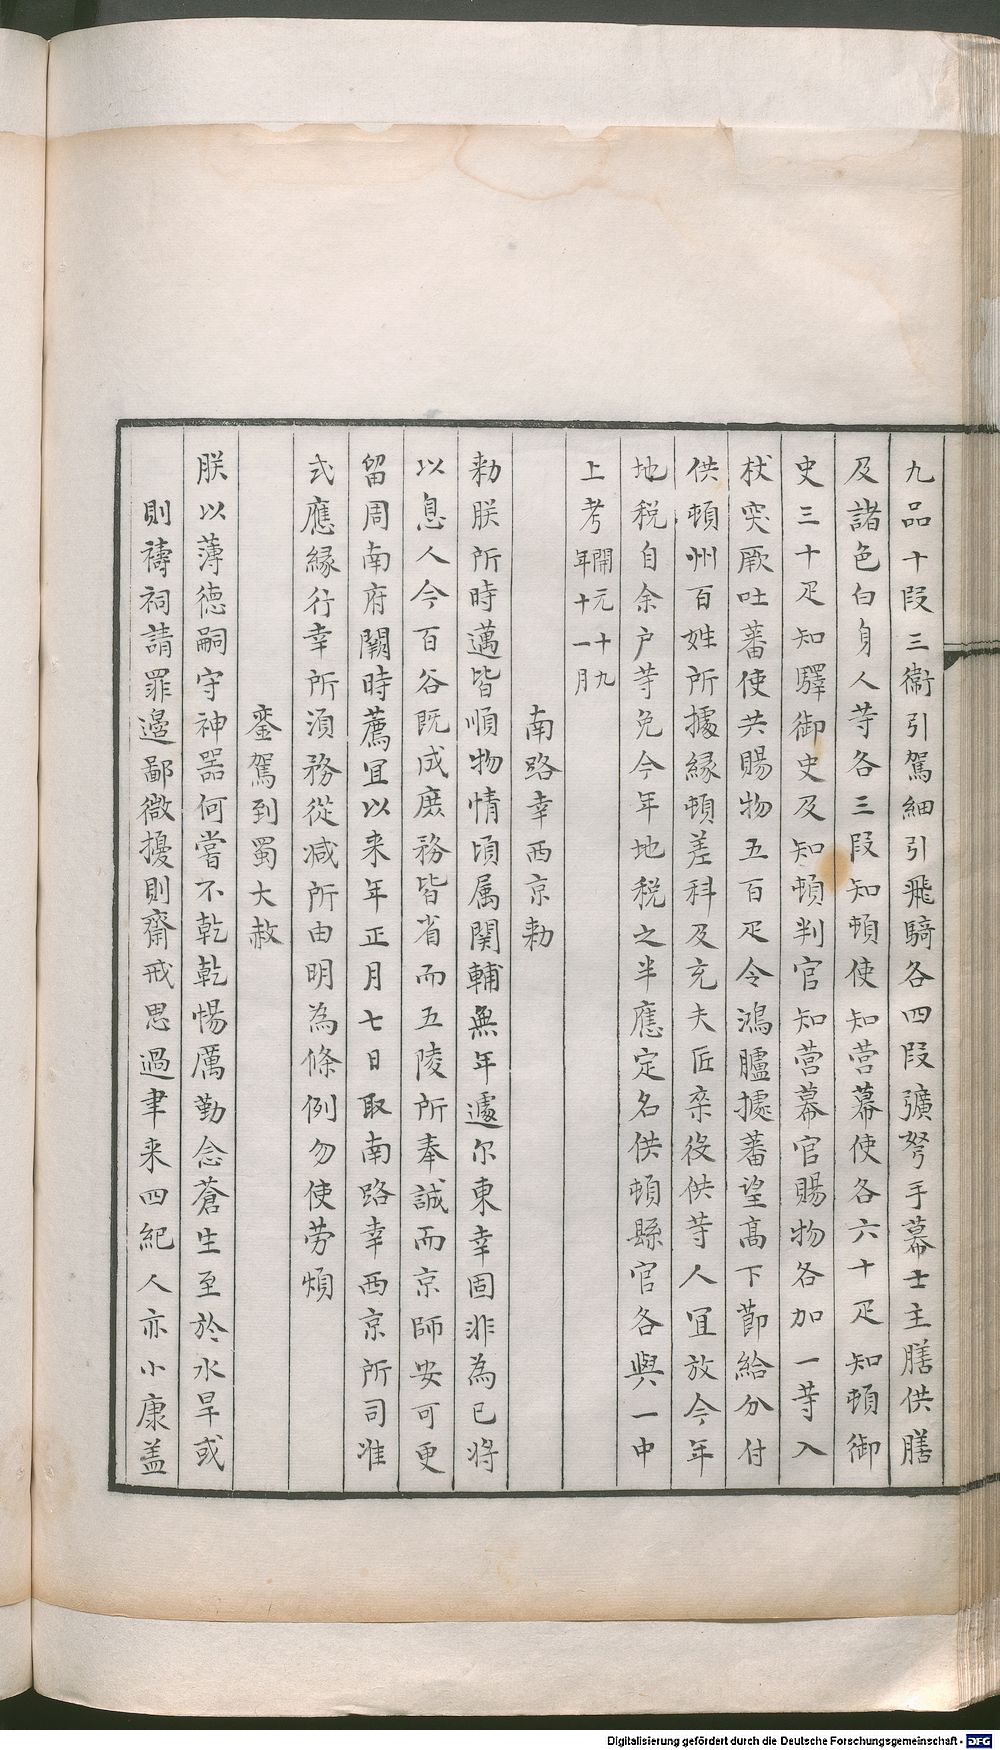 九品十段三衞引駕細引飛騎各四段彍弩手幕士主膳供膳
及諸色白身人等各三段知頓使知营幕使各六十疋知頓御
史三十疋知驛御史及知頓判官知营幕官賜物各加一等入
杖突厥吐蕃使共賜物五百疋令鴻臚據蕃望髙下節給分付
供頓州百姓所據緣頓差科及充夫匠卒役供等人冝放今年
地税自余户等免今年地税之半應定名供頓縣官各與一中
上考開元十九年十一月
南路幸西京勅
勅朕所時邁皆順物情頃属関輔無年遽尔東幸固非為已将
以息人今百谷既成庶務皆省而五陵所奉誠而京師安可更
留周南府闕時薦冝以来年正月七日取南路幸西京所司准
式應緣行幸所湏務從减所由明為條例勿使劳煩
鑾駕到蜀大赦
朕以薄德嗣守神器何嘗不乾乾惕厲勤念蒼生至於水旱或
則禱祠請罪邉鄙微擾則齋戒思過聿来四紀人亦小康盖
Digitalisierung gefördert durch die Deutsche Forschungsgemeinschaft - DFG